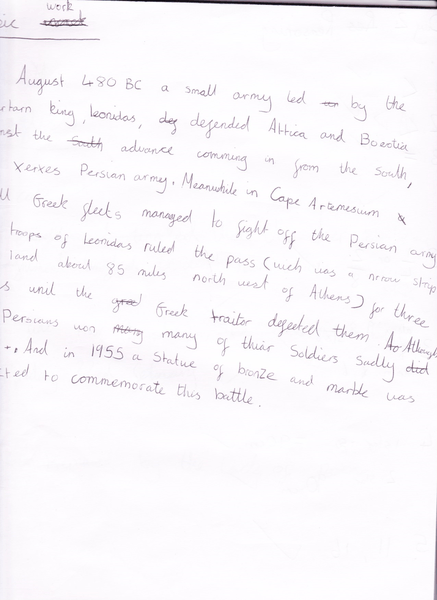 work
August 480 BC a small army led by the
rtarn king, Leonidas, defended Attica and Boeotia
nst the advance comming in from the South,
xerxes Persian army. Meanwhile in Cape Artemesium
ll Greek fleets managed to fight off the Persian army
troops of Leonidas ruled the pass (wich was a nrrow strip
land about 85 miles north west of Athens) for three
s until the Greek traitor defected them. Although
Persians won many of thier Soldiers Sadly did
. And in 1955 a Statue of bronze and marble was
cted to commemorate this battle.